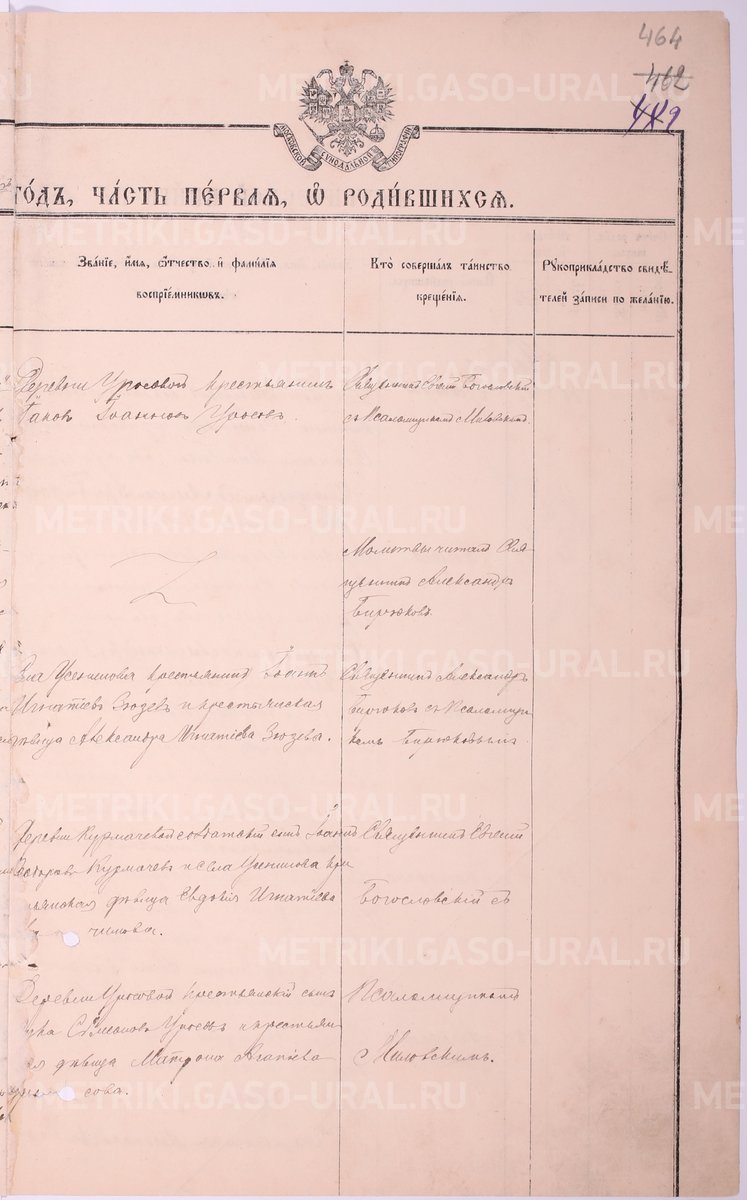 464
462
МОСКОВСКОЙ СѴНОДАЛЬНОЙ ТИПОГРАФІИ
ГОДЪ, ЧАСТЬ ПЕРВАЯ, Ѡ РОДИВШИХСЯ.
Званіе, имя, отчество и фамилія
воспріемниковъ.
Кто совершалъ таинство
крещенія.
Рукоприкладство свидѣ-
телей записи по желанію.
Деревни Уросовой крестьянинъ
Іаковъ Іоанновъ Уросовъ.
Священникъ Евгеній Богословскій
съ Псаломщикомъ Миловскимъ.
Молитвы читалъ Свя-
щенникъ Александръ
Бирюковъ
Села Усениновa крестьянинъ
Игнатіевъ Зюзевъ и крестьянская
дѣвица Александра Игнатіева Зюзева.
Священникъ Александръ
Бирюковъ съ Псаломщи-
комъ Бирюковымъ
Деревни Курмачевой солдатскій сынъ Іоаннъ
Курмачевъ и села Усенинова кре
стьянская дѣвица Евдокія Игнатіева
Священникъ Евгеній
Богословскій съ
Деревни Уросовой крестьянскій сынъ
Лука Симеоновъ Уросовъ и крестьян-
дѣвица Матрона Агапіева
сова.
Псаломщикомъ
Миловскимъ.
METRIKI.GASO-URAL.RU